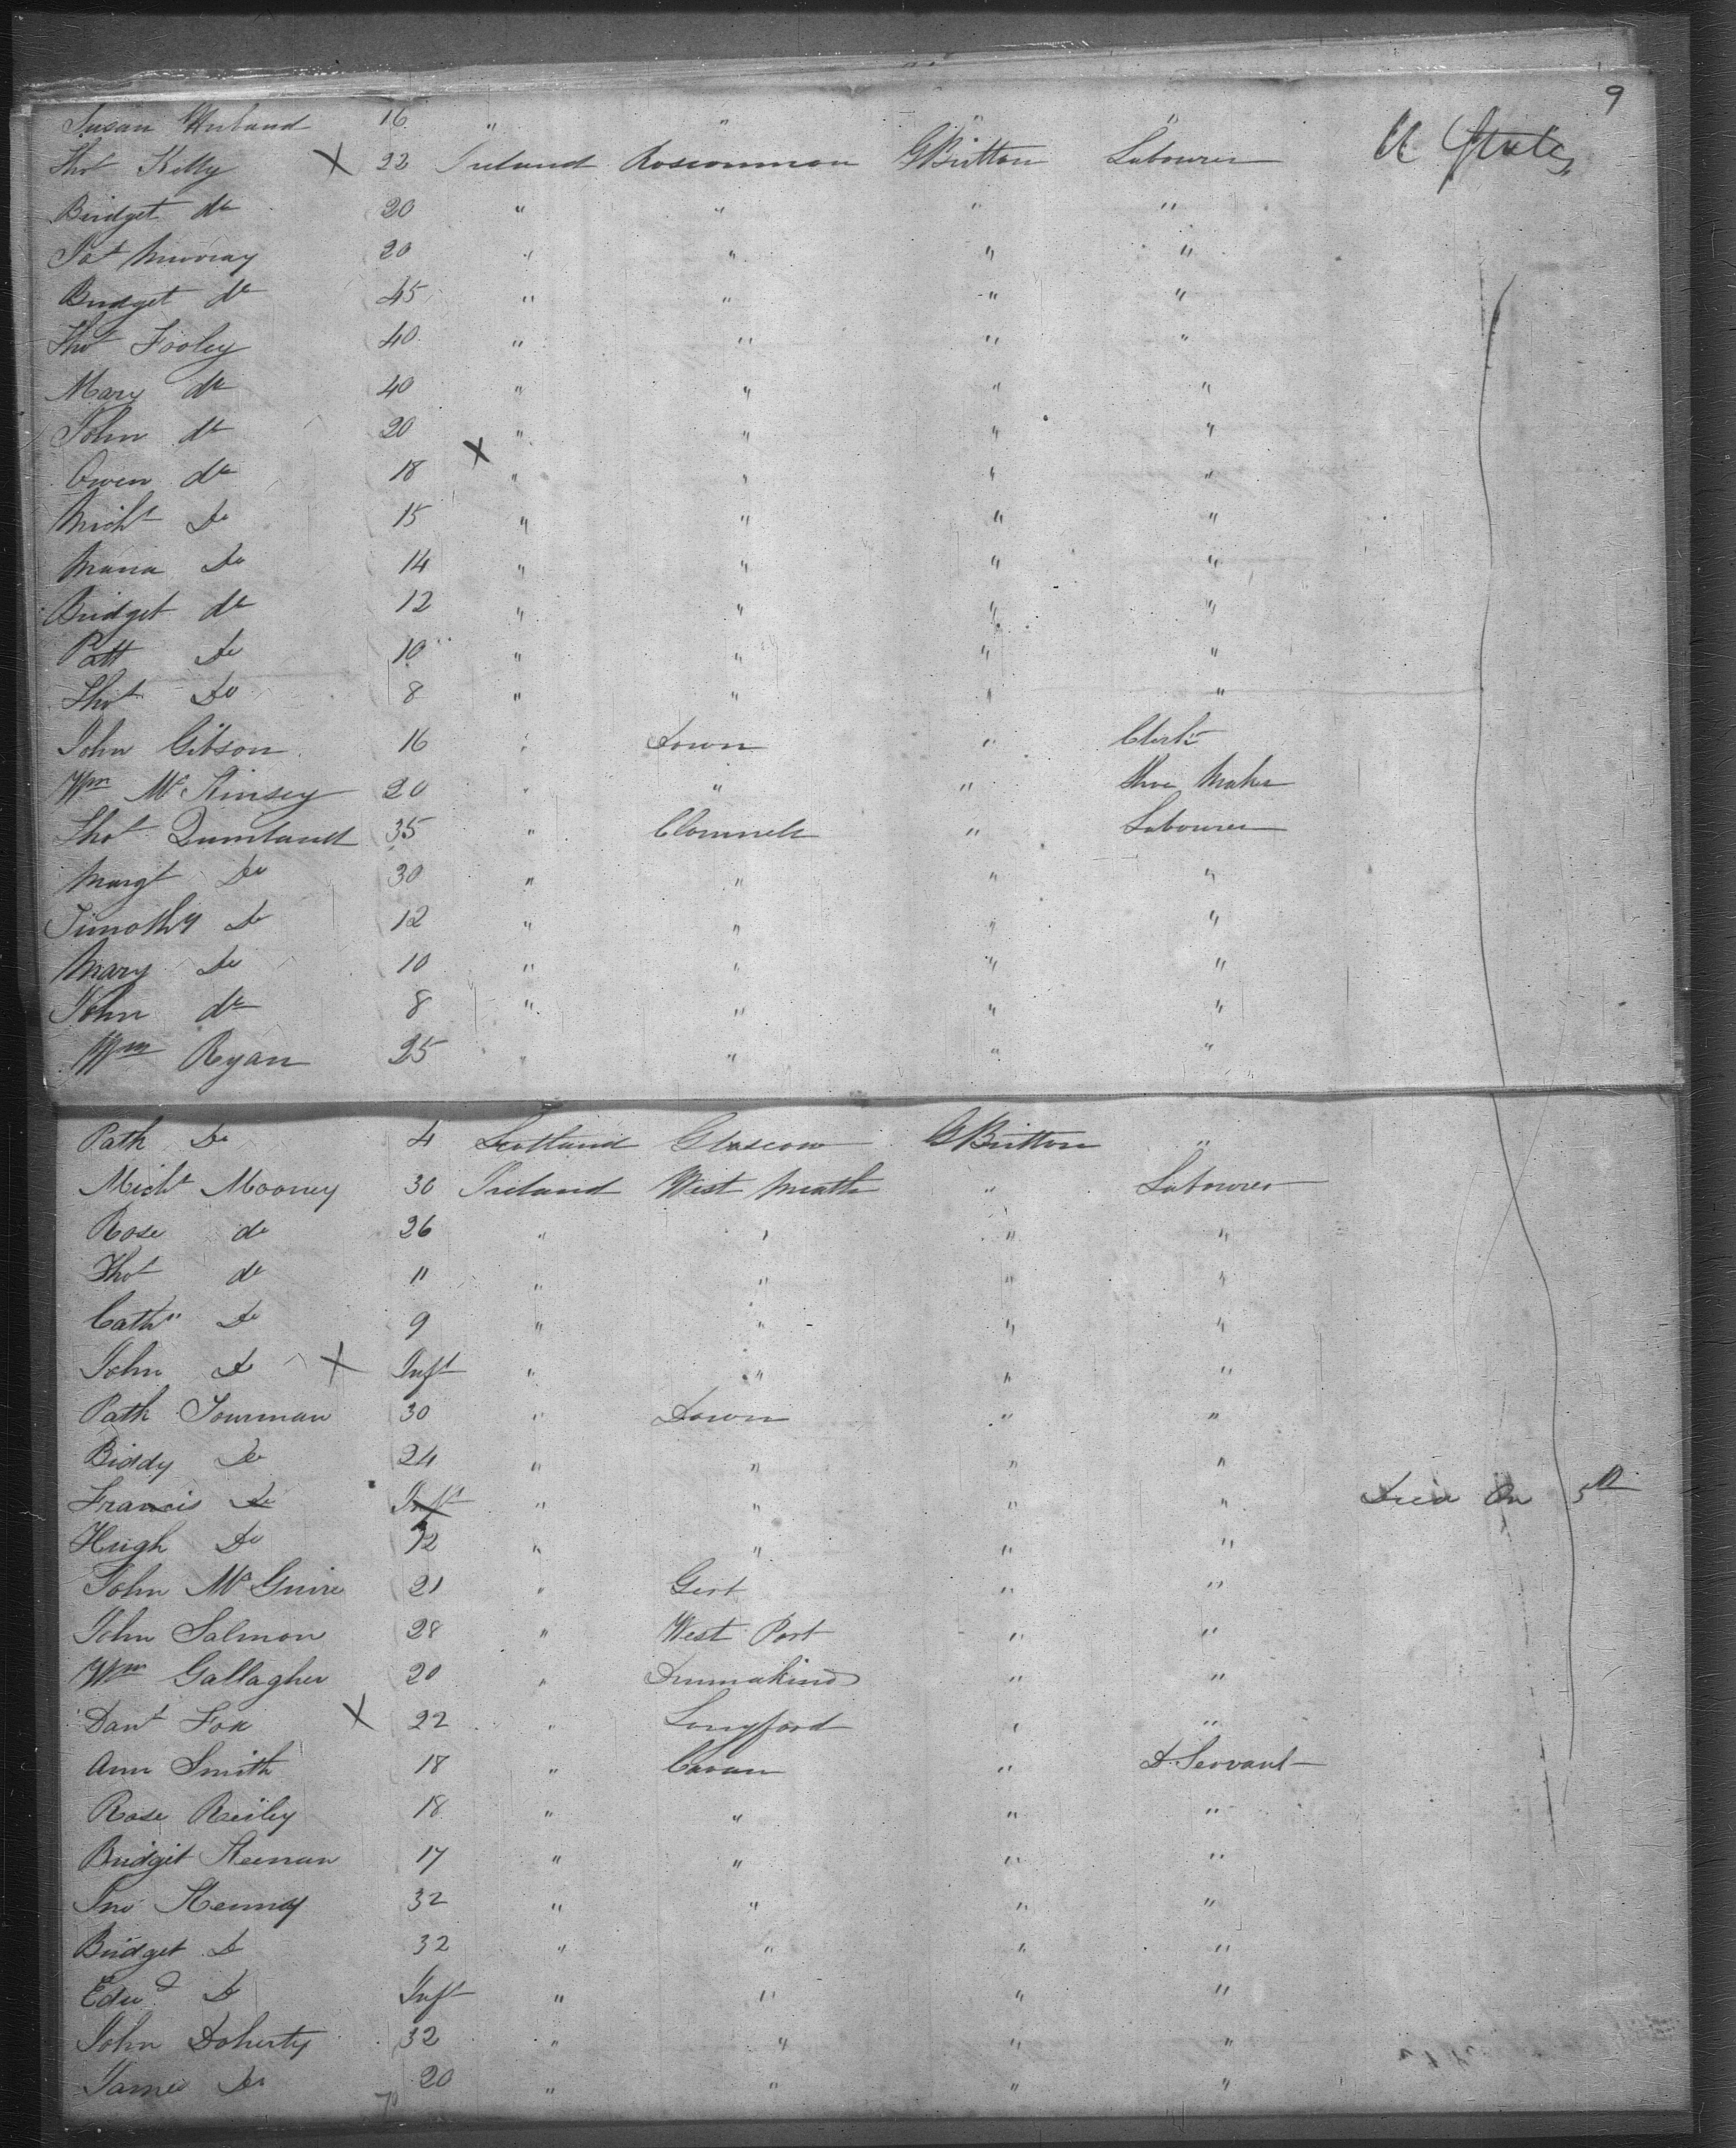 9
Susan 16 " " " "
Thos Kelly X 22 Ireland Roscommon G Britton Labourer U States
Bridget do 20 " " " "
Pat Murray 20 " " " "
Bridget do 45 " " " "
Thos Fooley 40 " " " "
Mary do 40 " " " "
John do 20 " " " "
Owen do 18 X " " " "
Michl Do 15 " " " "
Maria Do 14 " " " "
Bridget do 12 " " " "
Patt Do 10 " " " "
Thos Do 8 " " " "
John Gibson 16 " Down " Clerk
Wm McKinsey 20 " " " Shoe Maker
Thos 35 " Clonmell " Labourer
Margt Do 30 " " " "
Timothy Do 12 " " " "
Mary Do 10 " " " "
John do 8 " " " "
Wm Ryan 25 " " " "
Patk Do 4 Scotland Glascow G Britton "
Michl Mooney 30 Ireland West Meath " Labourer
Rose do 26 " " " "
Thos do 11 " " " "
Cathn Do 9 " " " "
John Do X Inft " " " "
Patk 30 " Down " "
Biddy Do 24 " " " "
Francis Do Inft " " " " Died On 5th
Hugh Do 12 " " " "
John McGuire 21 " Gort " "
John Salmon 28 " West Port " "
Wm Gallagher 20 " " "
Danl Fox X 22 " Longford " "
Ann Smith 18 " Cavan " D. Servant
Rose Reiley 18 " " " "
Bridgit Keenan 17 " " " "
Jno Kenney 32 " " " "
Bridget Do 32 " " " "
Edwd Do Inft " " " "
John Doherty 32 " " " "
James Do 20 " " " "
70